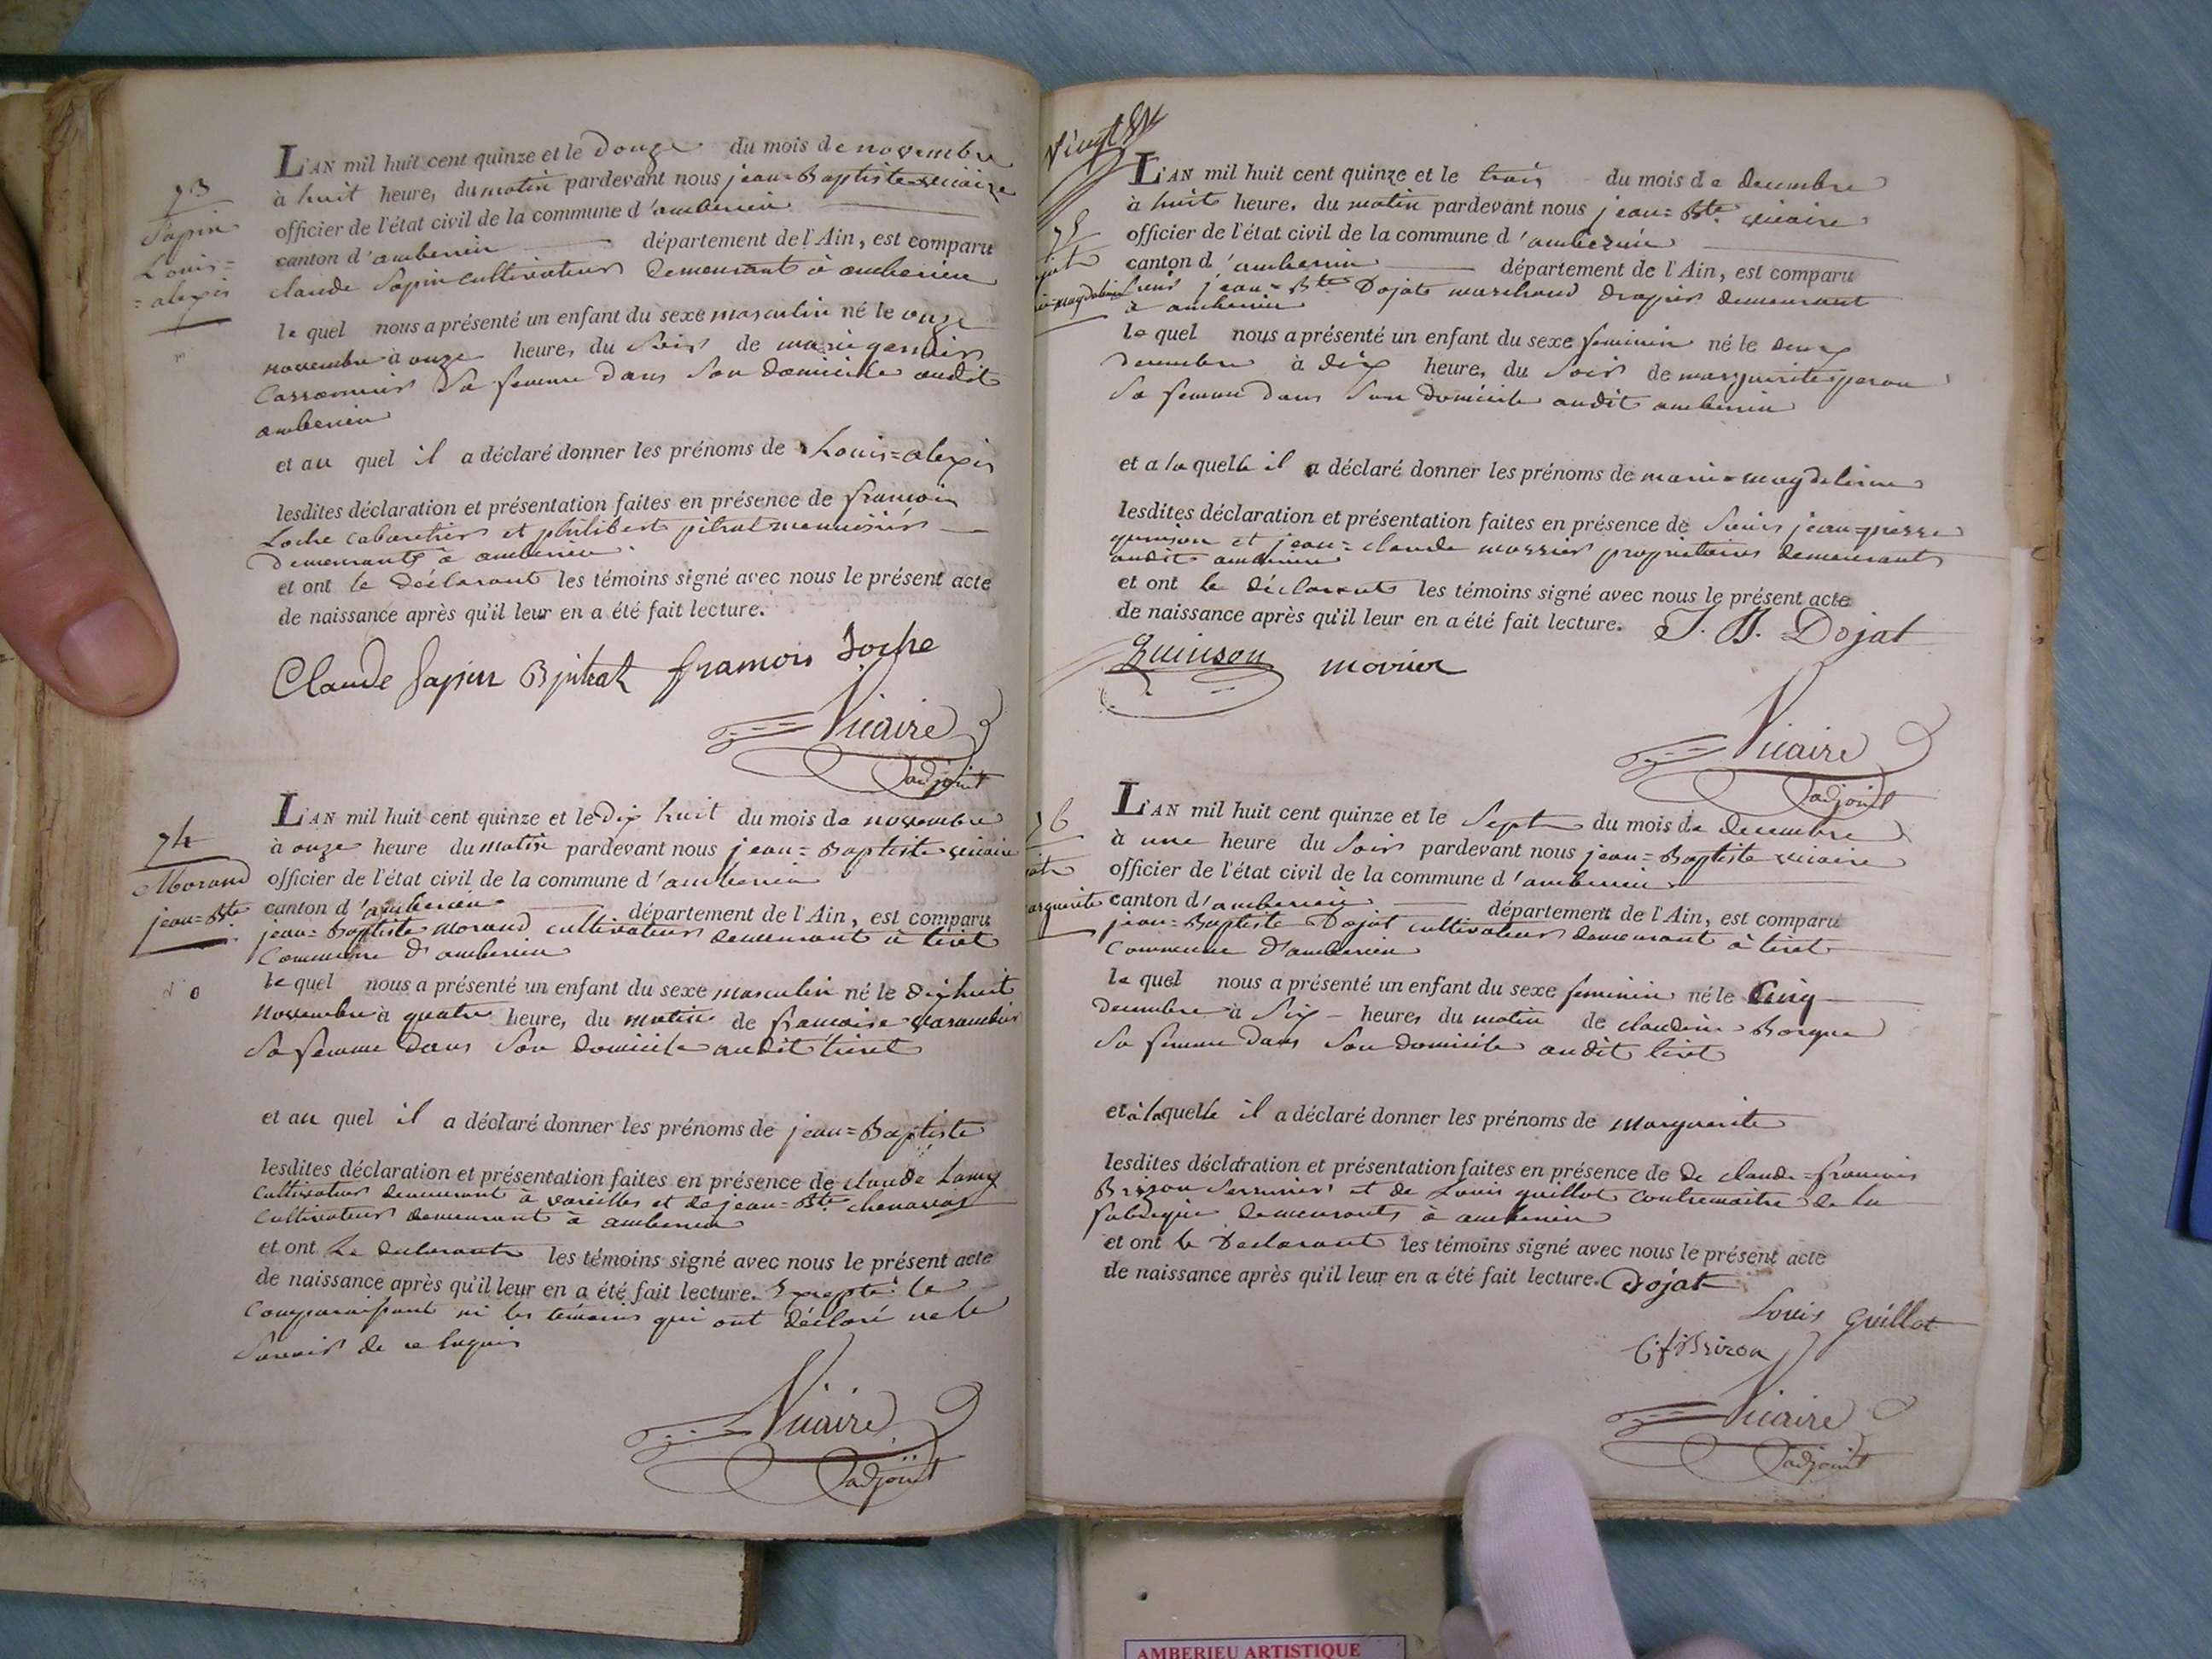 73
Sapin
Louis=
=alexis
L'AN mil huit cent quinze et le Douze du mois de novembre
à huit heure, du matin pardevant nous jean=Baptiste vicaire
officier de l'état civil de la commune d'amberieu
canton d'amberieu département de l'Ain, est comparu
claude Sapin cultivateur Demeurant à amberieu
le quel nous a présenté un enfant du sexe masculin né le onze
novembre à onze heure, du Soir de marie
Sa femme dans Son domicile audit
amberieu
et au quel il a déclaré donner les prénoms de Louis=alexis
lesdites déclaration et présentation faites en présence de francois
Loche cabaretier et philibert pitrat menuisier
Demeurants à amberieu
et ont le Déclarant les témoins signé avec nous le présent acte
de naissance après qu'il leur en a été fait lecture.
Claude Sapin pitrat francois Loche
Vicaire
adjoint
74
Morand
jean=Bte
L'AN mil huit cent quinze et le Dix huit du mois de novembre
à onze heure du matin pardevant nous jean=Baptiste vicaire
officier de l'état civil de la commune d'amberieu
canton d'amberieu département de l'Ain, est comparu
jean=Baptiste morand cultivateur demeurant à tiret
Commune d'amberieu
le quel nous a présenté un enfant du sexe masculin né le dix huit
Novembre à quatre heure, du matin de francoise
Sa femme dans Son domicile audit tiret
et au quel il a déclaré donner les prénoms de jean=Baptiste
lesdites déclaration et présentation faites en présence de claude
Cultivateur demeurant à vareilles et de jean=Bte
Cultivateur demeurant à amberieu
et ont Le declarant les témoins signé avec nous le présent acte
de naissance après qu'il leur en a été fait lecture. Excepté le
Comparaissant ni les témoins qui ont déclaré ne le
Savoir de ce Enquis
Vicaire
adjoint
Vingt
75
L'AN mil huit cent quinze et le trois du mois de decembre
à huit heure, du matin pardevant nous jean=Bte vicaire
officier de l'état civil de la commune d'amberieu
canton d'amberieu département de l'Ain, est comparu
Sieur jean=Bte Dojat marchand drapier demeurant
à amberieu
le quel nous a présenté un enfant du sexe feminin né le deux
decembre à dix heure, du Soir de marguerite
Sa femme dans Son domicile audit amberieu
et a la quelle il a déclaré donner les prénoms de marie=magdeleine
lesdites déclaration et présentation faites en présence de Sieurs jean=pierre
quinson et jean=claude propriétaires demeurants
audit amberieu
et ont le déclarant les témoins signé avec nous le présent acte
de naissance après qu'il leur en a été fait lecture. J. B. Dojat
Quinson
Vicaire
adjoint
76
marguerite
L'AN mil huit cent quinze et le Sept du mois de decembre
à une heure du Soir pardevant nous jean=Baptiste vicaire
officier de l'état civil de la commune d'amberieu
canton d'amberieu département de l'Ain, est comparu
jean=Baptiste Dojat cultivateur demeurant à tiret
Commune d'amberieu
le quel nous a présenté un enfant du sexe feminin né le Cinq
decembre à Six heure, du matin de claudine
Sa femme dans Son domicile audit tiret
et à laquelle il a déclaré donner les prénoms de marguerite
lesdites déclaration et présentation faites en présence de De claude=francois
Brizon Serrurier et de Louis guillot contremaitre de la
fabrique demeurants à amberieu
et ont le Déclarant les témoins signé avec nous le présent acte
de naissance après qu'il leur en a été fait lecture. Dojat
Louis Guillot
C. f Brizon
Vicaire
adjoint
AMBERIEU ARTISTIQUE